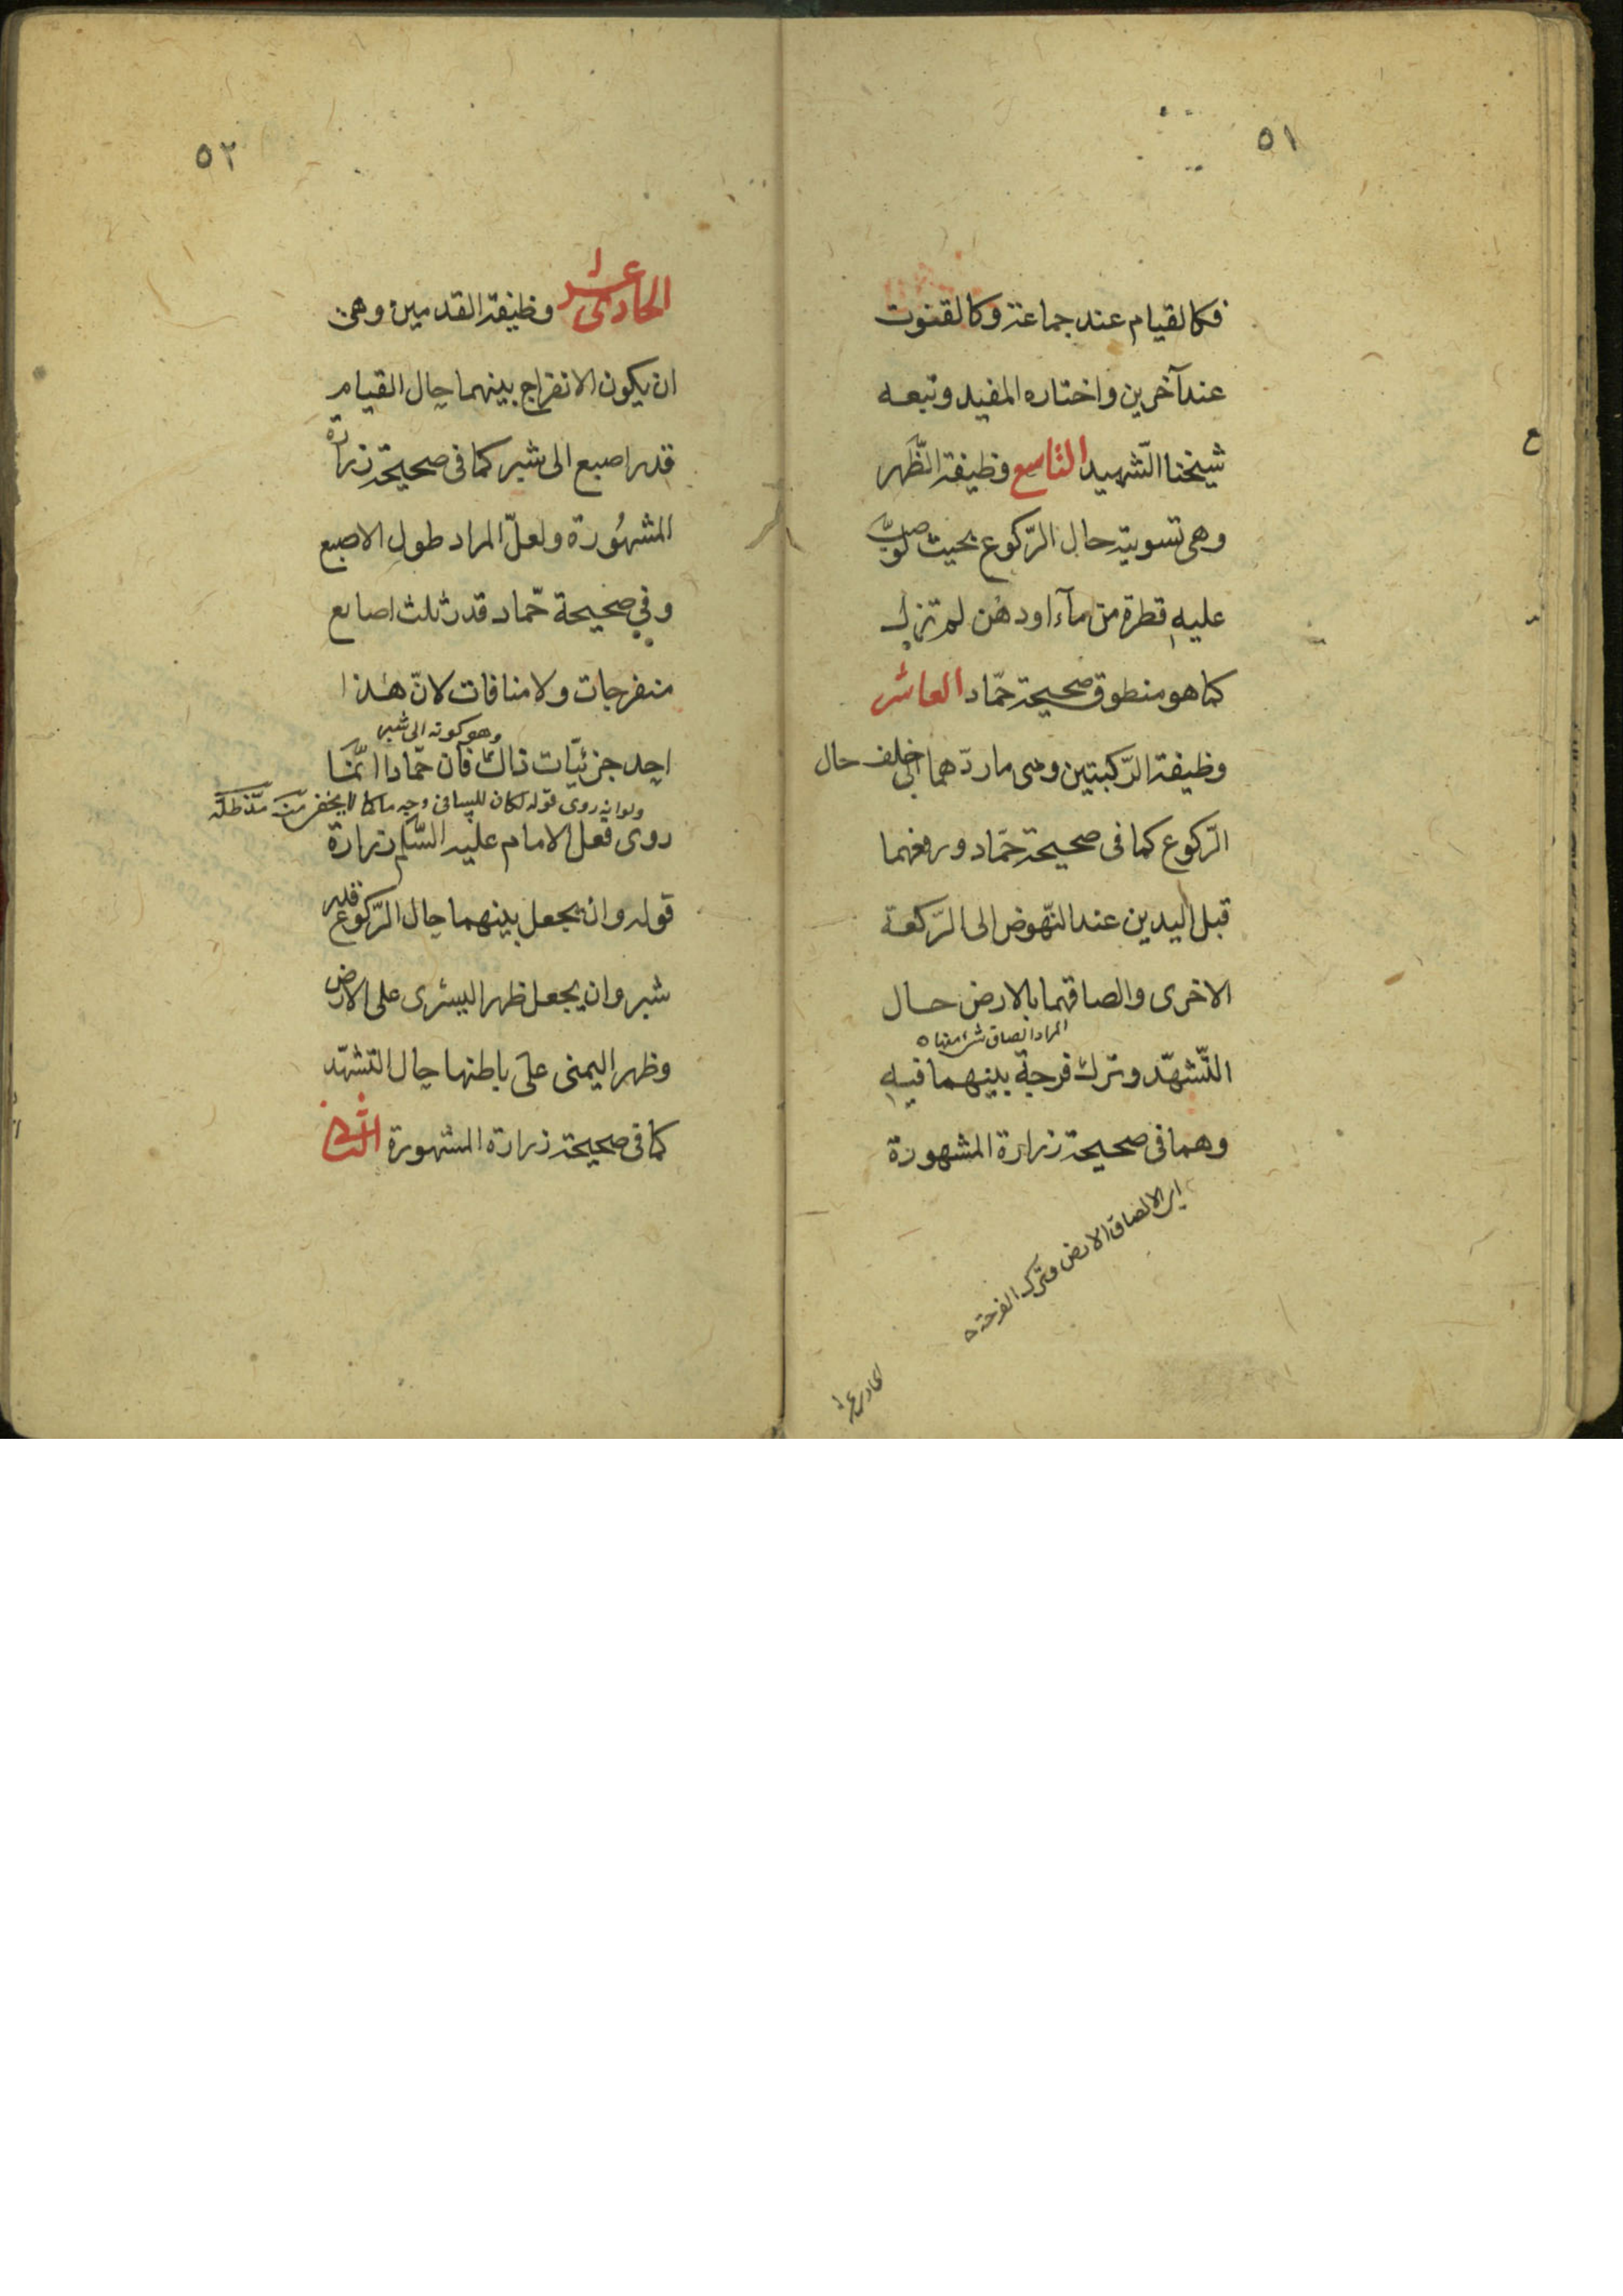 ٥١
فكالقيام عند جماعة وكالقنوت
عند آخرين واختاره المفيد وتبعه
شيخنا الشّهيد التاسع وظيفة الظّهر
وهى تسويته حال الرّكوع بحيث لو صبّ
عليه قطرة من مآء او دهن لم تزل
كما هو منطوق صحيحة حمّاد العاشر
وظيفة الرّكبتين وهى ما ردّهما الى خلف حال
الرّكوع كما فى صحيحة حمّاد ورفعهما
قبل اليدين عند النّهوض الى الرّكعة
الاخرى والصاقهما بالارض حال
المراد الصاق شئ منها
التّشهّد وترك فرجة بينهما فيه
وهما فى صحيحة زرارة المشهورة
اى الالصاق الارض وترك الفرجة
الحادى عشر
٥٢
الحادى عشر وظيفة القدمين وهى
ان يكون الانفراج بينهما حال القيام
قدر اصبع الى شبر كما فى صحيحة زرارة
المشهُورة ولعلّ المراد طول الاصبع
وفي صحيحة حّماد قدر ثلث اصابع
منفرجات ولا منافات لانّ هذا
وهو كونه الى شبر
احد جزئيّات ذاك فان حمّادا انّمَا
ولو انه روى قوله لكان للتنافى وجه ما كما لا يخفى منه مدّ ظلّه
روى فعل الامام عليه السّلم وزرارة
قوله وان يجعل بينهما حال الرّكوع قدر
شبر وان يجعل ظهر اليسرى على الارض
وظهر اليمنى على باطنها حال التشهّد
كما فى صحيحة زرارة المشهورة الثانى